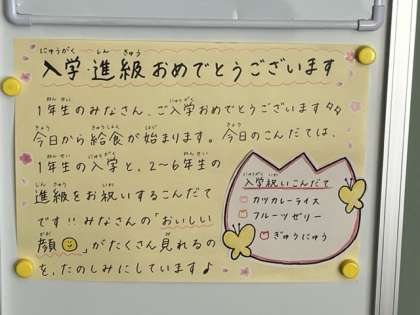 入学・進級おめでとうございます
1年生のみなさん、ご入学おめでとうございます
今日から給食が始まります。今日のこんだては、
1年生の入学と、2~6年生の
進級をお祝いするこんだて
です!!みなさんの「おいしい
顔」がたくさん見れるの
を、たのしみにしています♪
入学祝いこんだて
カツカレーライス
フルーツゼリー
ぎゅうにゅう